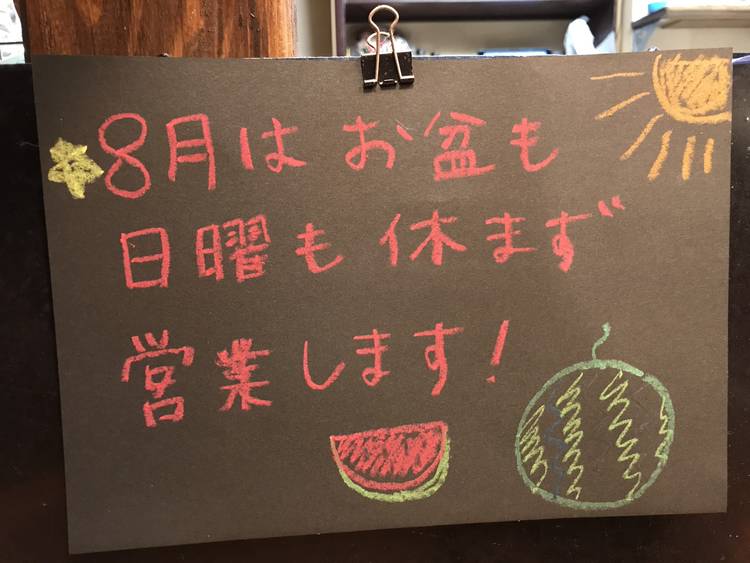 8月はお盆も
日曜も休まず
営業します!